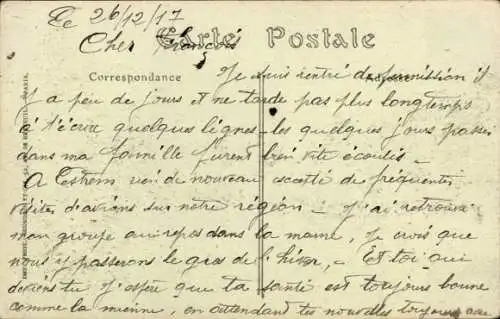 Le 26/12/17
Carte Postale
Cher François
Correspondance
Je suis rentré de permission il
y a peu de jours et ne tarde pas plus longtemps
à t'écrire quelques lignes - les quelques jours passés
dans ma famille furent bien vite écoulés -
A rien de nouveau excepté de fréquentes
visites d'avions sur notre région - J'ai retrouvé
mon groupe au repos dans la marne, Je crois que
nous y passerons le gros de l'hiver, - Et toi qui
deviens tu J'espère que ta santé est toujours bonne
comme la mienne, en attendant tes nouvelles toujours